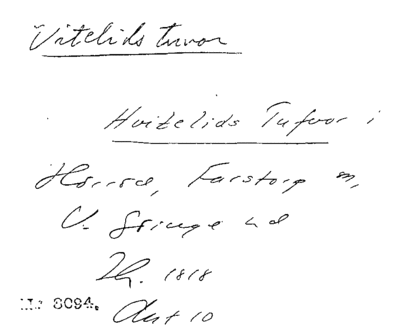 Vitelids tuvor
Hvitelids Tufvor i
Hörröd, Farstorp m,
V. Göinge hd
Th. 1818
8094. Ant 10